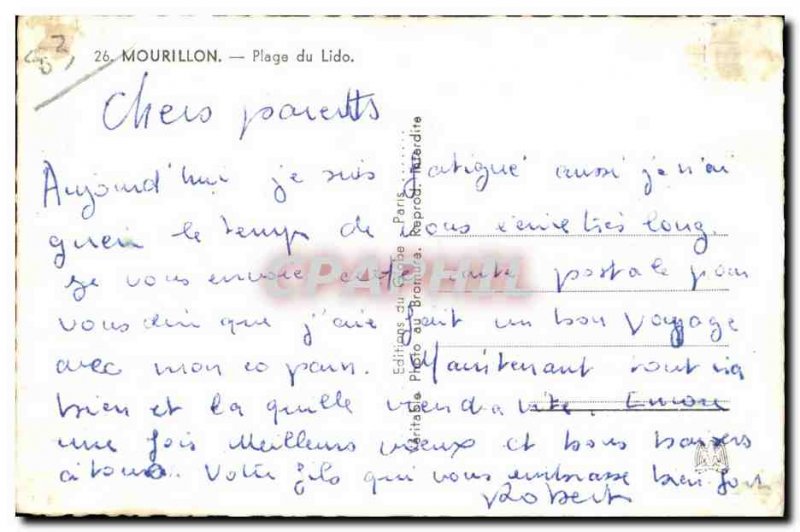 26. MOURILLON. — Plage du Lido.
Chers parents
Aujourd'hui je suis fatigué aussi je n'ai
guère le temps de vous écrire très long.
Je vous envoie cette carte postale pour
vous dire que j'aie fait un bon voyage
avec mon copain. Maintenant tout va
bien et la quille viendra vite. Encore
une fois Meilleurs voeux et bons baisers
à tous. Votre fils qui vous embrasse bien fort
Robert
Editions du Globe Paris
Véritable Photo au Bromure. Reprod. Interdite
CPAPHIL